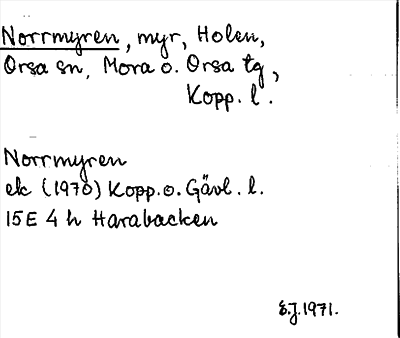 Norrmyren, myr, Holen,
Orsa sn, Mora o. Orsa tg,
Kopp. l.
Norrmyren
ek (1970) Kopp. o. Gävl. l.
15E 4 h Harabacken
E.J. 1971.